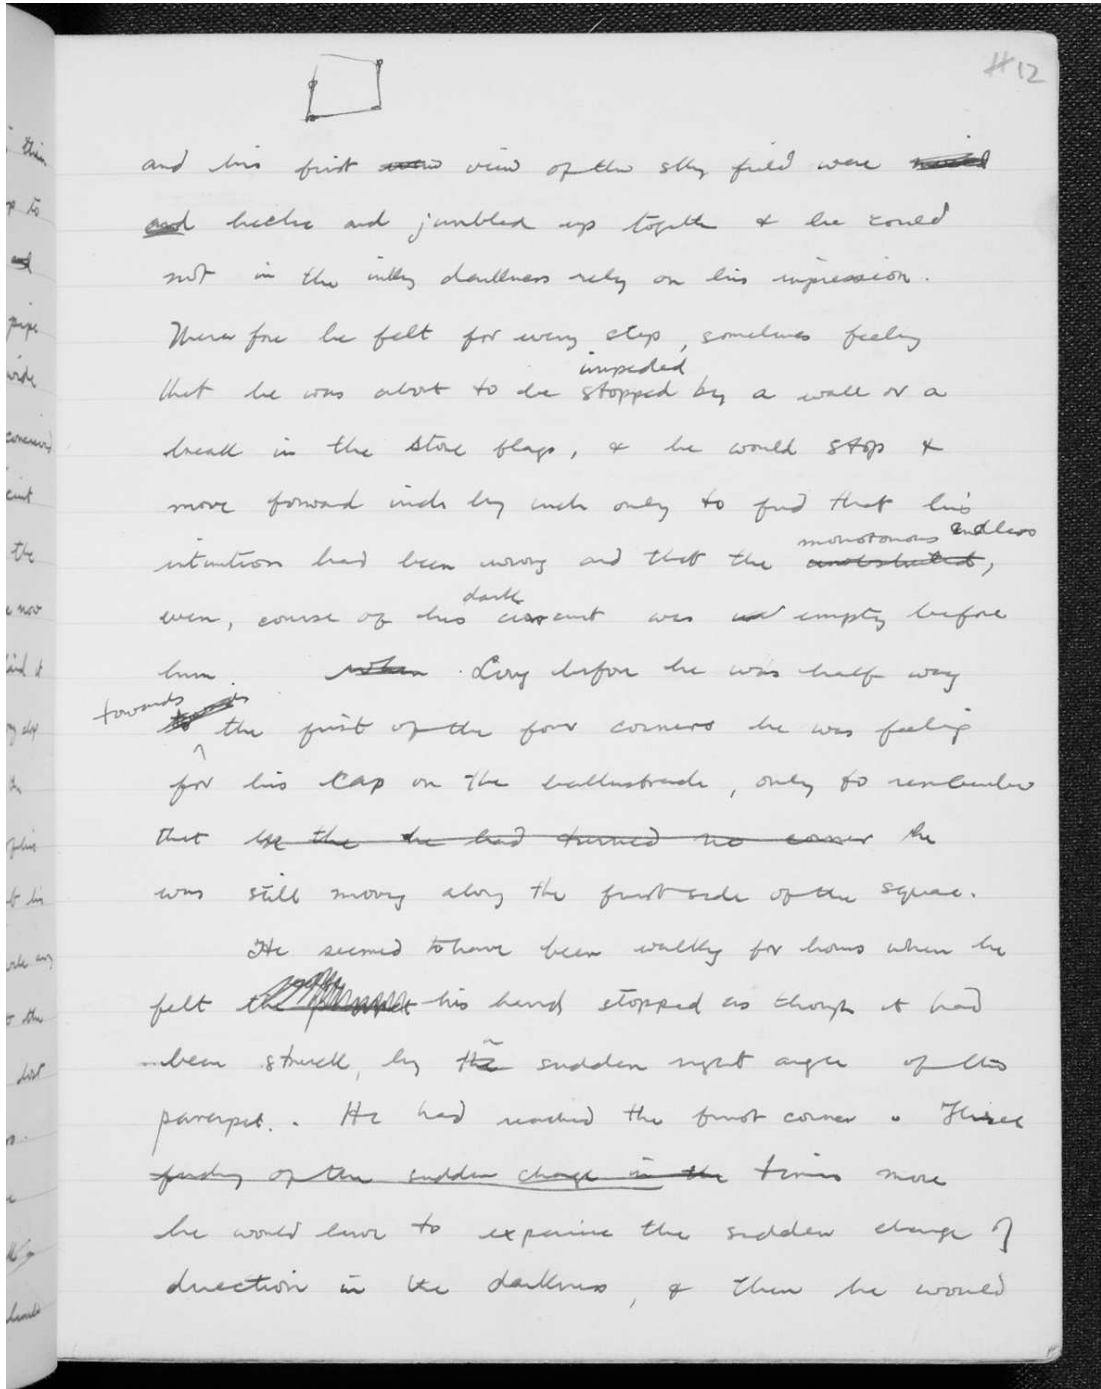 #12
and his first view of the sky field were
and hectic and jumbled up together & he could
not in the inky darkness rely on his impression.
Therefore he felt for every step, sometimes feeling
impeded
that he was about to be stopped by a wall or a
break in the stone flags, & he would stop &
move forward inch by inch only to find that his
monotonous endless
intuition had been wrong and that the unobstructed,
dark
even, course of his circuit was empty before
him. when . Long before he was half way
towards
to the first of the four corners he was feeling
for his cap on the ballustrade, only to remember
that the he had turned no corner he
was still moving along the first side of the square.
He seemed to have been walking for hours when he
felt the his hand stopped as though it had
been struck, by the sudden right angle of the
parapet. He had reached the first corner. Three
finding of the sudden change in the times more
he would have to experience the sudden change of
direction in the darkness, & then he would